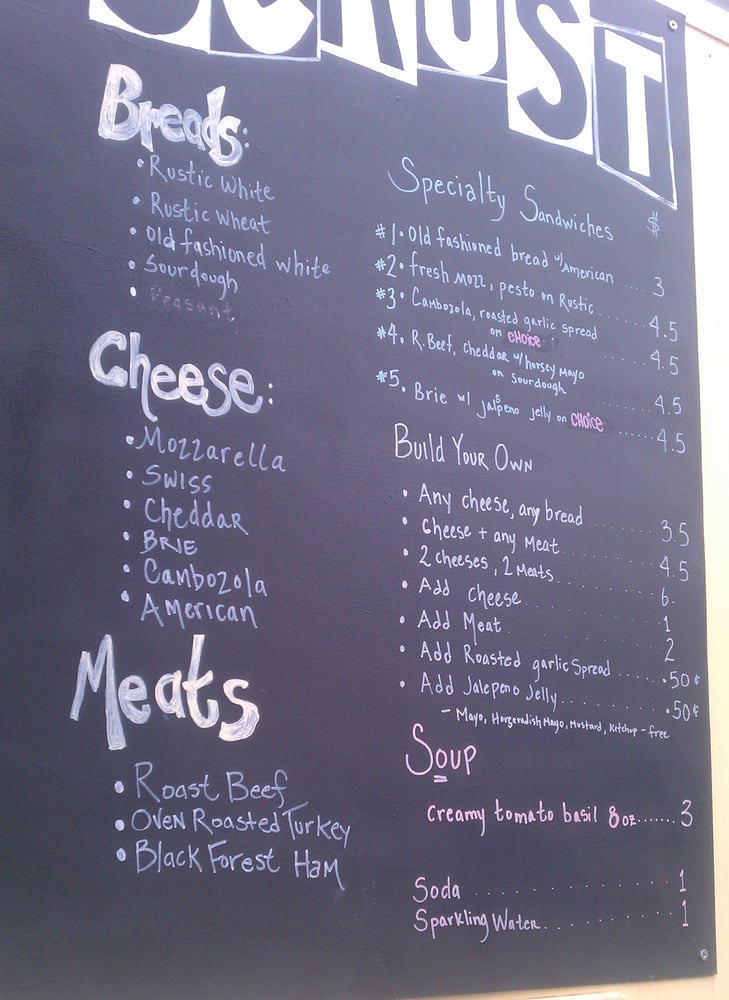 CRUST
Breads:
• Rustic White
• Rustic Wheat
• Old fashioned White
• Sourdough
• Peasant
Cheese:
• Mozzarella
• Swiss
• Cheddar
• BRIE
• Cambozola
• American
Meats
• Roast Beef
• Oven Roasted Turkey
• Black Forest Ham
Specialty Sandwiches $
#1. Old fashioned bread w/American .... 3
#2. fresh mozz, pesto on Rustic ....... 4.5
#3. Cambozola, roasted garlic spread
on CHOICE ...... 4.5
#4. R. Beef, cheddar w/horsey Mayo
on sourdough ...... 4.5
#5. Brie w/ jalpeno jelly on CHOICE ...... 4.5
Build Your Own
• Any cheese, any bread ....... 3.5
• Cheese + any Meat ....... 4.5
• 2 cheeses, 2 Meats ....... 6.
• Add cheese ....... 1
• Add Meat ....... 2
• Add Roasted garlic Spread ..... .50¢
• Add Jalepeno Jelly ....... .50¢
- Mayo, Horseradish Mayo, Mustard, Ketchup - free
Soup
creamy tomato basil 8oz....... 3
Soda ....... 1
Sparkling Water ....... 1